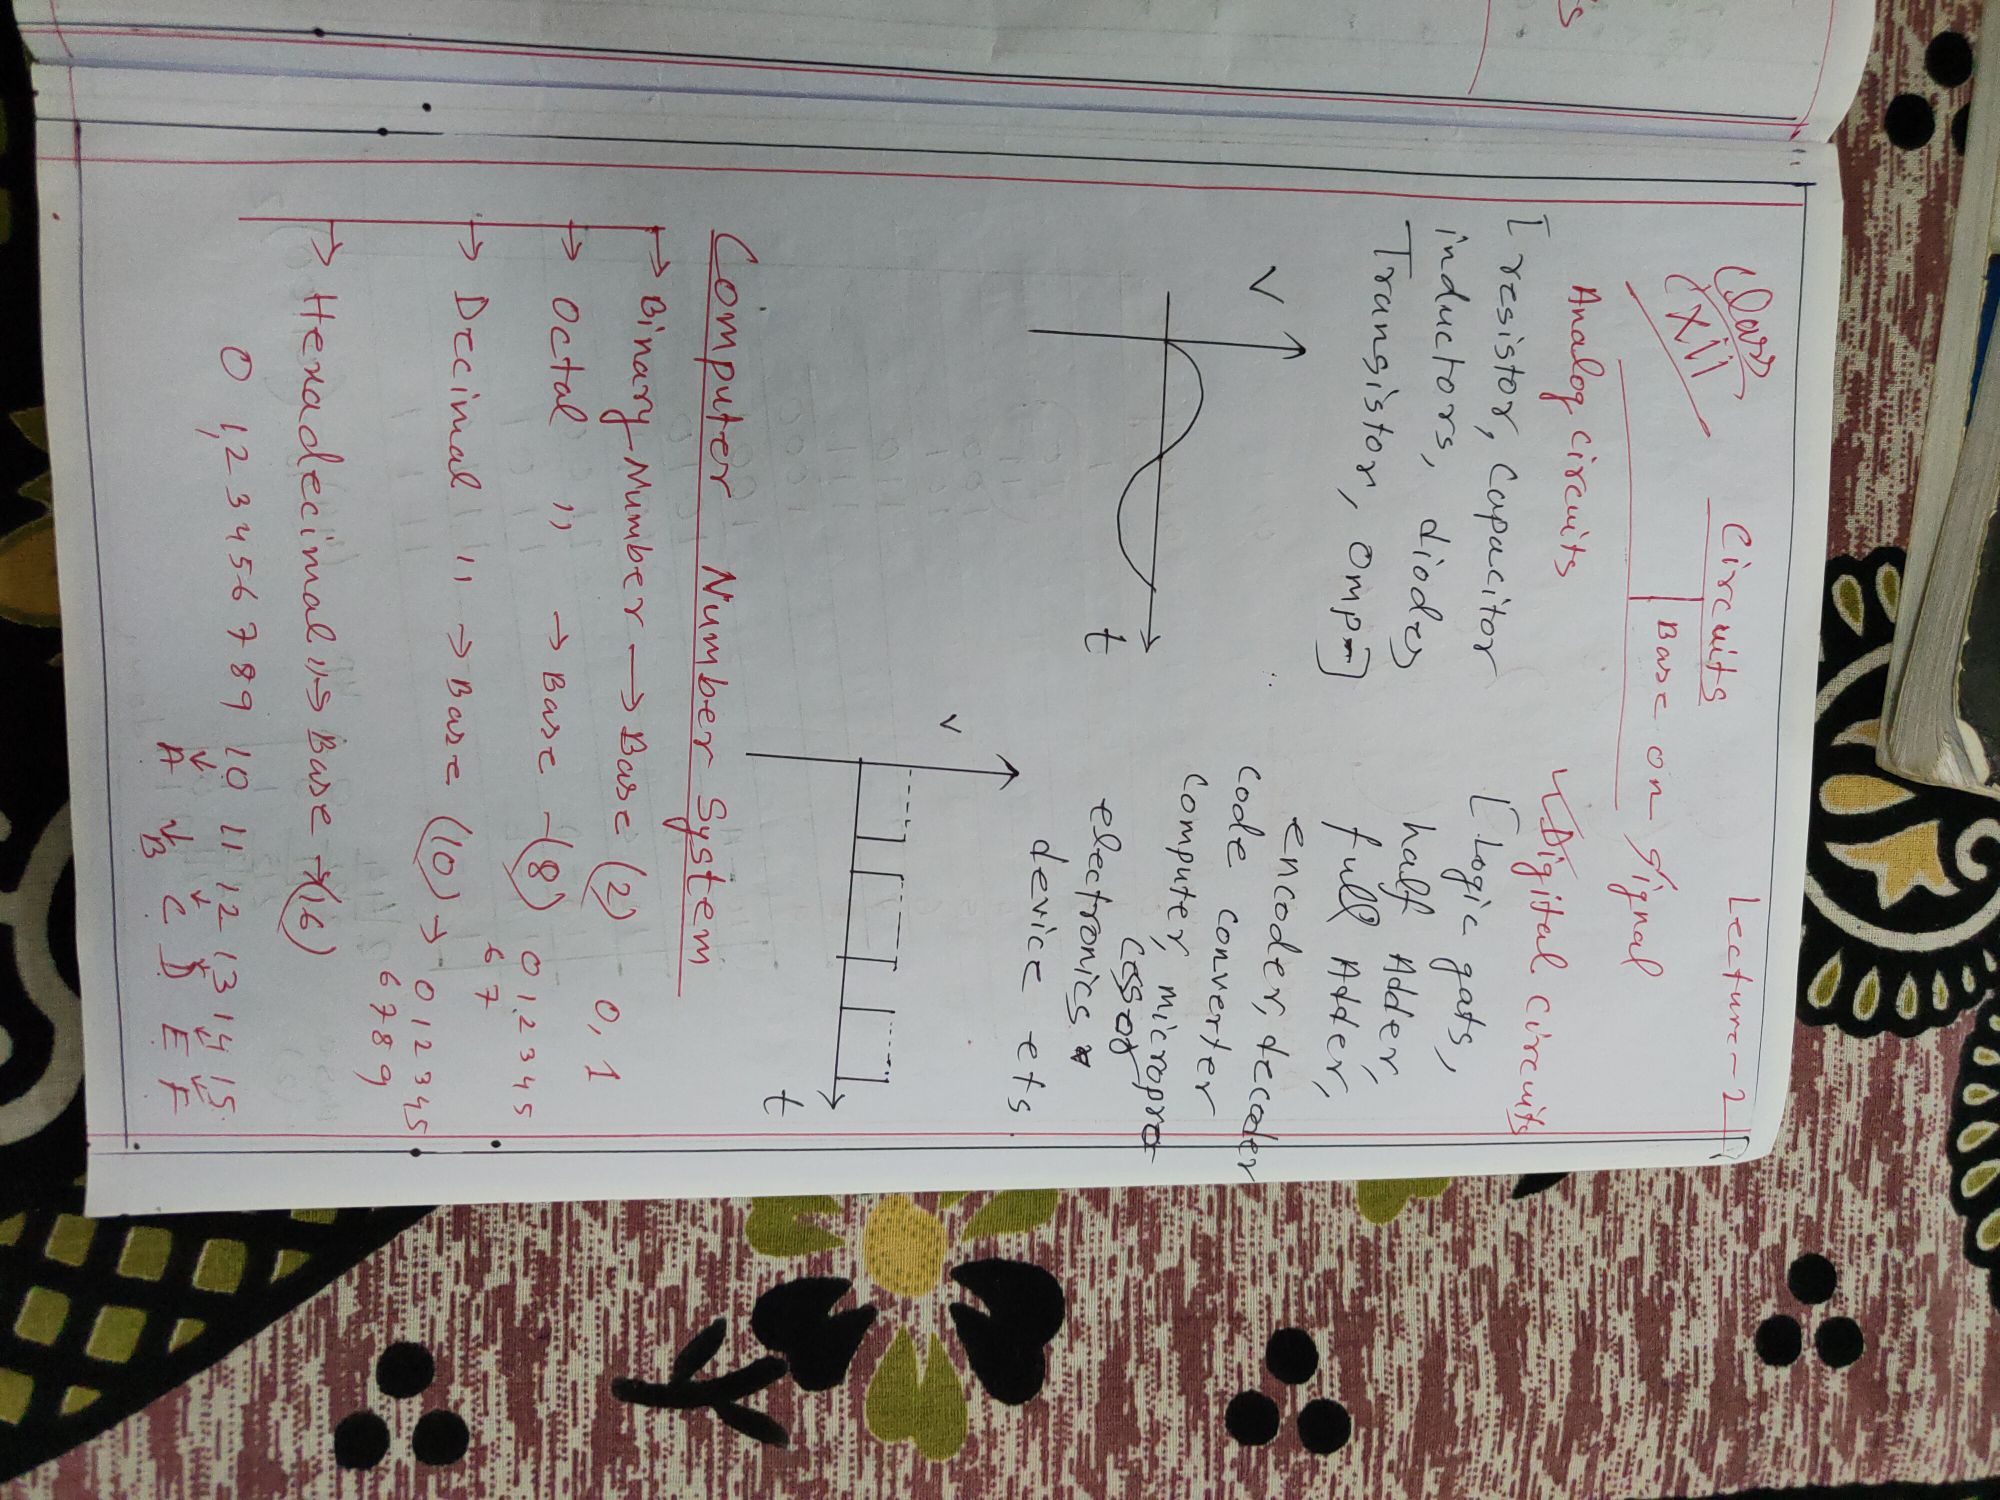 Class
(XII)
Circuits
Lecture-1
Base on Signal
Analog circuits
[resistor, Capacitor
inductors, diodes
Transistor, OmP]
V
t
Digital circuits
[Logic gats,
half Adder,
full Adder,
encoder, decoder
code converter
computer, micropro
cessor
electronics
device ets
V
t
Computer Number System
→ Binary Number → Base (2) 0, 1
→ Octal " → Base - (8) 0 1, 2 3 4 5
6 7
→ Decimal " → Base (10) → 0 1 2 3 4 5
6 7 8 9
→ Hexadecimal " → Base → (16)
0 1, 2 3 4 5 6 7 8 9 10 11 12 13 14 15
A B C D E F